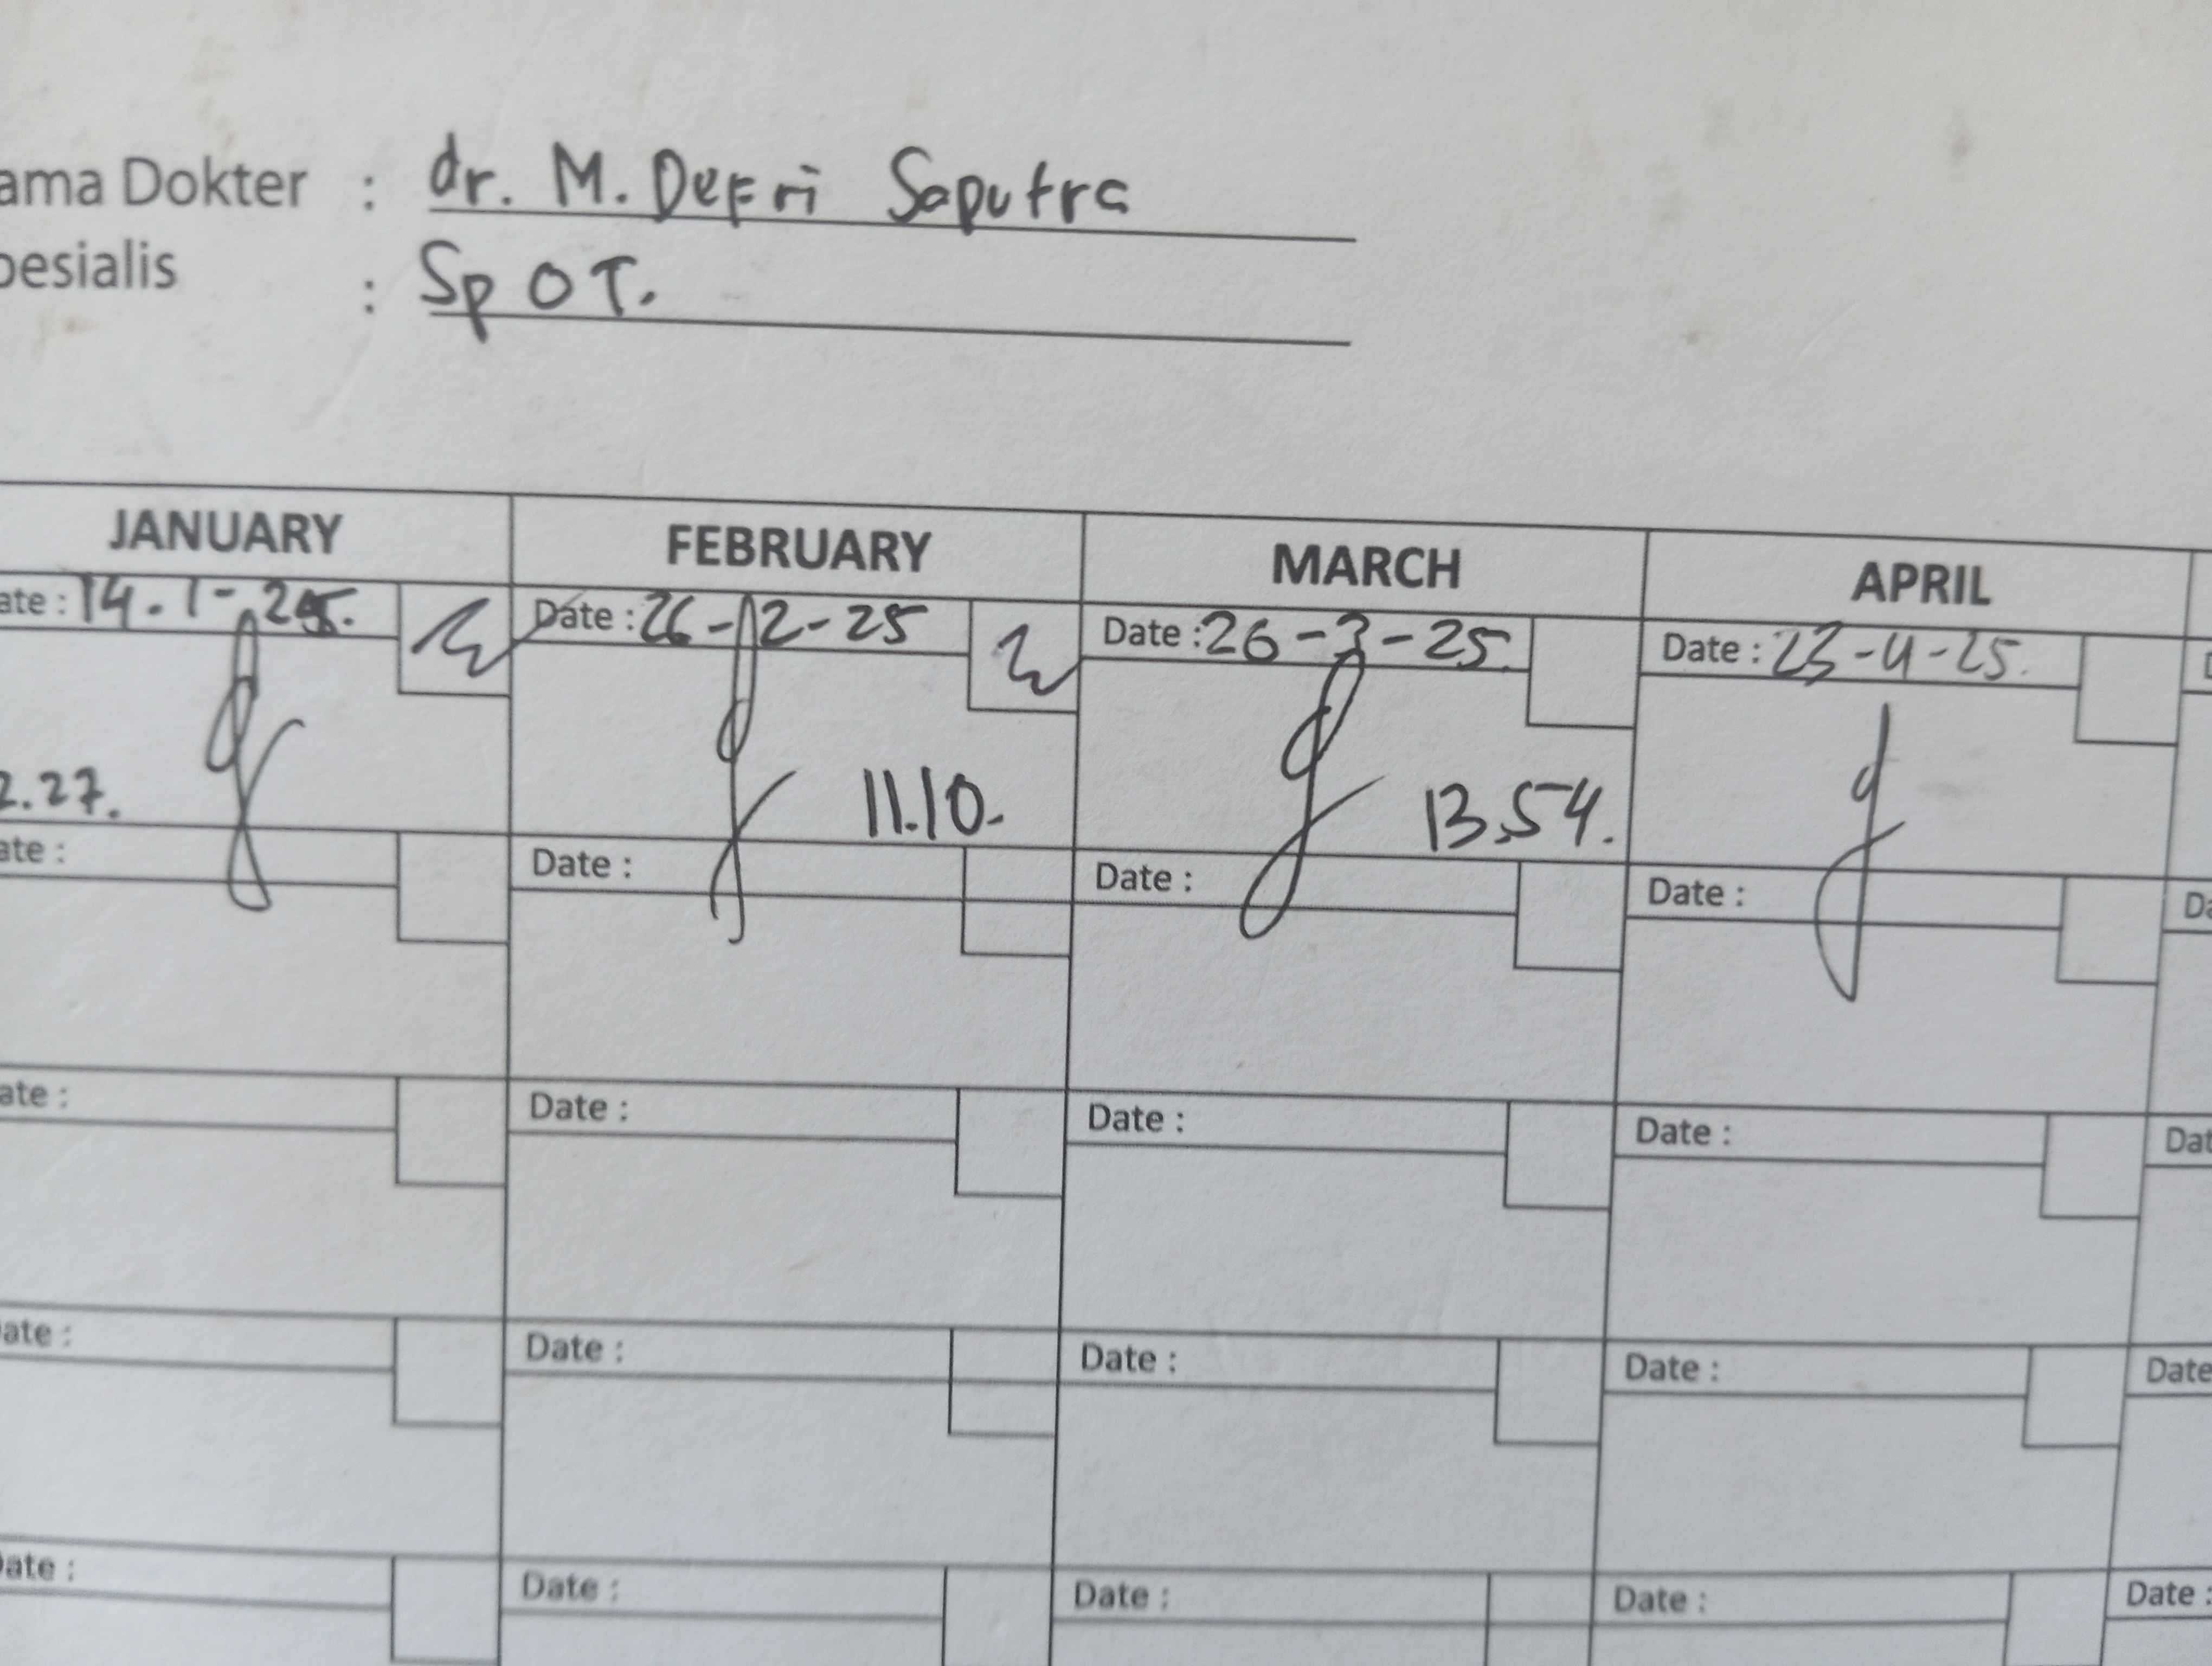 ama Dokter : dr. M. Defri Saputra
pesialis : Sp OT.
JANUARY FEBRUARY MARCH APRIL
ate : 14.1-25. Date : 26-2-25 Date : 26-3-25. Date : 23-4-25.
2.27. 11.10. 13.54.
ate : Date : Date : Date : Da
ate : Date : Date : Date : Dat
ate : Date : Date : Date : Date
Date : Date : Date : Date : Date :